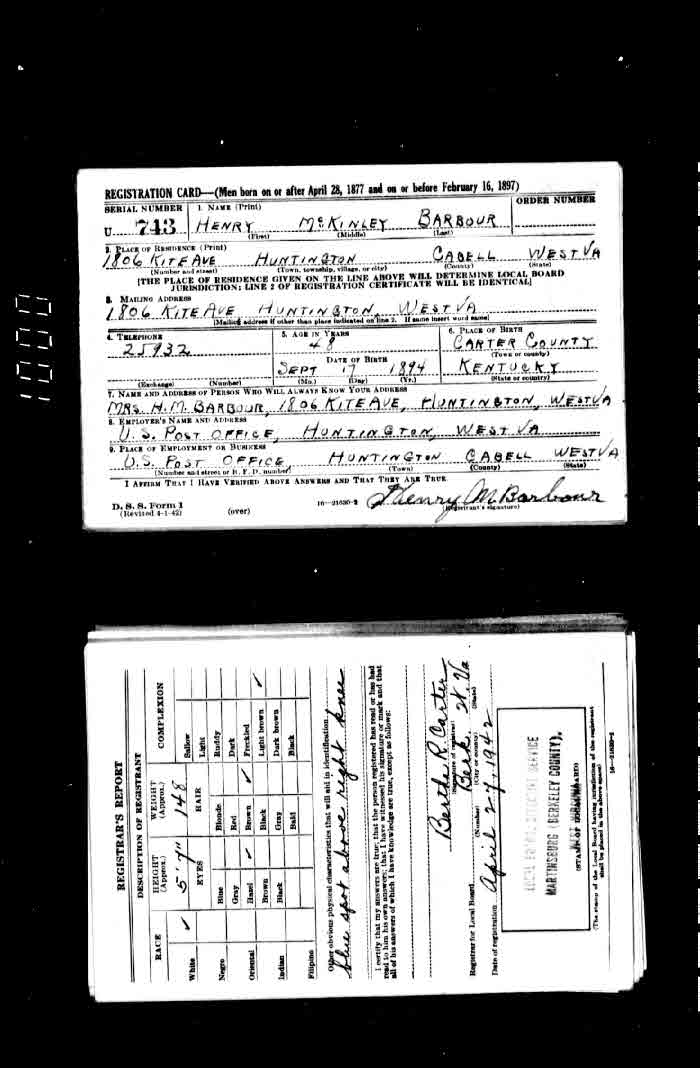 1000
REGISTRATION CARD—(Men born on or after April 28, 1877 and on or before February 16, 1897)
SERIAL NUMBER 1. NAME (Print) ORDER NUMBER
U 743 HENRY McKINLEY BARBOUR
(First) (Middle) (Last)
2. PLACE OF RESIDENCE (Print)
1806 KITE AVE HUNTINGTON CABELL WEST VA
(Number and street) (Town, township, village, or city) (County) (State)
[THE PLACE OF RESIDENCE GIVEN ON THE LINE ABOVE WILL DETERMINE LOCAL BOARD
JURISDICTION; LINE 2 OF REGISTRATION CERTIFICATE WILL BE IDENTICAL]
3. MAILING ADDRESS
1806 KITE AVE HUNTINGTON, WEST VA
[Mailing address if other than place indicated on line 2. If same insert word same]
4. TELEPHONE 5. AGE IN YEARS 6. PLACE OF BIRTH
25932 48 CARTER COUNTY
DATE OF BIRTH (Town or county)
SEPT 17 1894 KENTUCKY
(Exchange) (Number) (Mo.) (Day) (Yr.) (State or country)
7. NAME AND ADDRESS OF PERSON WHO WILL ALWAYS KNOW YOUR ADDRESS
MRS. H.M. BARBOUR, 1806 KITE AVE, HUNTINGTON, WEST VA
8. EMPLOYER'S NAME AND ADDRESS
U.S. POST OFFICE, HUNTINGTON, WEST VA
9. PLACE OF EMPLOYMENT OR BUSINESS
U.S. POST OFFICE HUNTINGTON CABELL WEST VA
(Number and street or R. F. D. number) (Town) (County) (State)
I AFFIRM THAT I HAVE VERIFIED ABOVE ANSWERS AND THAT THEY ARE TRUE.
Henry M Barbour
D. S. S. Form 1 16—21630-2 (Registrant's signature)
(Revised 4-1-42) (over)
REGISTRAR'S REPORT
DESCRIPTION OF REGISTRANT
RACE HEIGHT (Approx.) WEIGHT (Approx.) COMPLEXION
White ✓ 5' 7" 148 Sallow
EYES HAIR Light
Negro Blue Blonde Ruddy
Gray Red Dark
Oriental Hazel ✓ Brown ✓ Freckled
Brown Black Light brown ✓
Indian Black Gray Dark brown
Bald Black
Filipino
Other obvious physical characteristics that will aid in identification
blue spot above right knee
I certify that my answers are true; that the person registered has read or has had
read to him his own answers; that I have witnessed his signature or mark and that
all of his answers of which I have knowledge are true, except as follows:
Bertha R. Carter
(Signature of registrar)
Registrar for Local Board Berk. W. Va
(Number) (City or county) (State)
Date of registration April 27, 1942
MARTINSBURG (BERKELEY COUNTY),
(STAMP OF LOCAL BOARD)
(The stamp of the Local Board having jurisdiction of the registrant
shall be placed in the above space)
16—21630-2